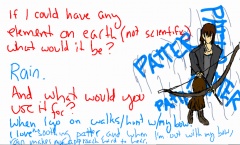 If I could have any
element on earth (not scientific)
what would it be?
Rain.
And what would you
use it for?
When I go on walks/hunt w/my bow.
I love soothing patter, and when I'm out with my bow,
rain makes my approach hard to hear.
PATTER
PATTER
PATTER
PATTER